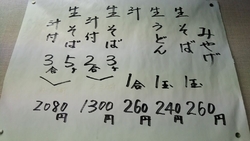 みやげ
生そば 1玉 260円
生うどん 1玉 240円
汁 1合 260円
生そば 3玉
汁付 2合 1300円
生そば 5玉
汁付 3合 2080円